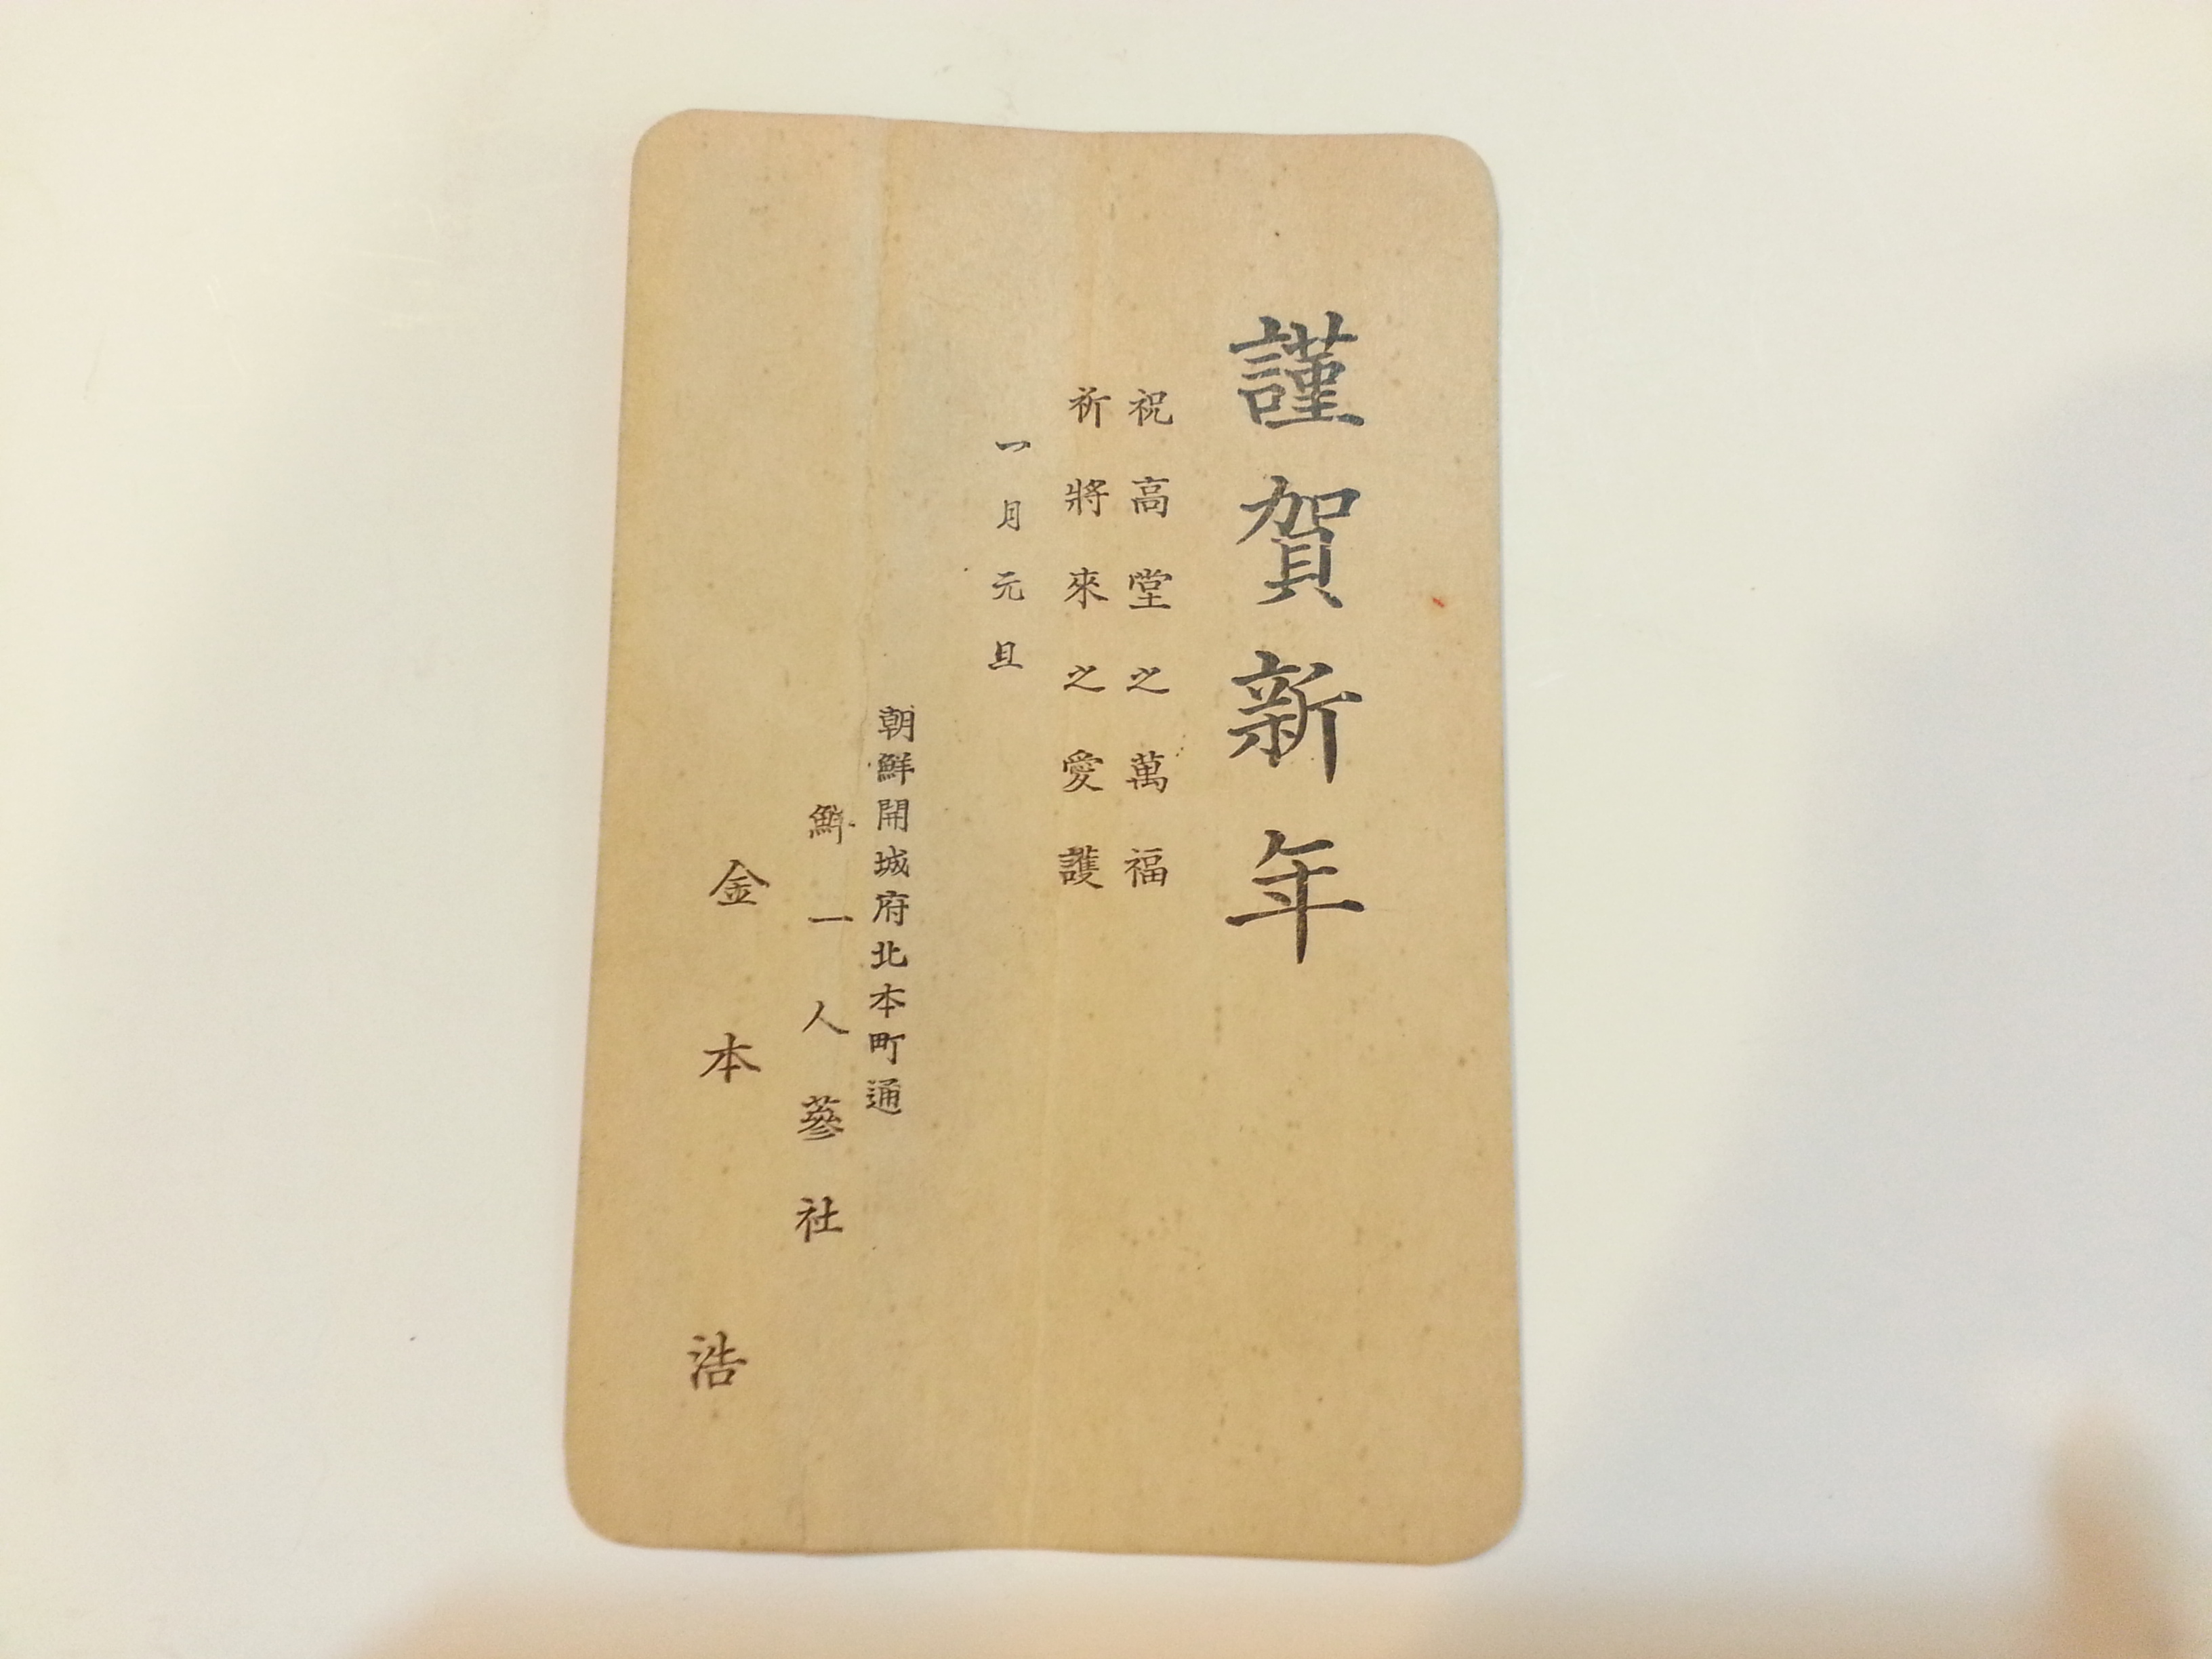 謹賀新年
祝高堂之萬福
祈將來之愛護
一月元旦
朝鮮開城府北本町通
鮮一人蔘社
金本浩